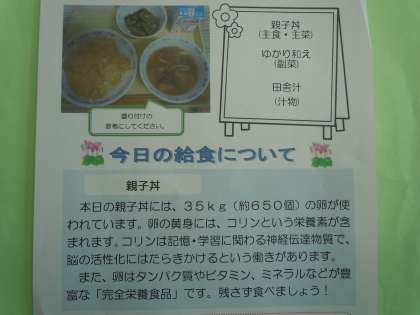 親子丼
(主食・主菜)
ゆかり和え
(副菜)
田舎汁
(汁物)
盛り付けの
参考にしてください。
今日の給食について
親子丼
本日の親子丼には、35kg（約650個）の卵が使
われています。卵の黄身には、コリンという栄養素が含
まれます。コリンは記憶・学習に関わる神経伝達物質で、
脳の活性化にはたらきかけるという働きがあります。
また、卵はタンパク質やビタミン、ミネラルなどが豊
富な「完全栄養食品」です。残さず食べましょう！